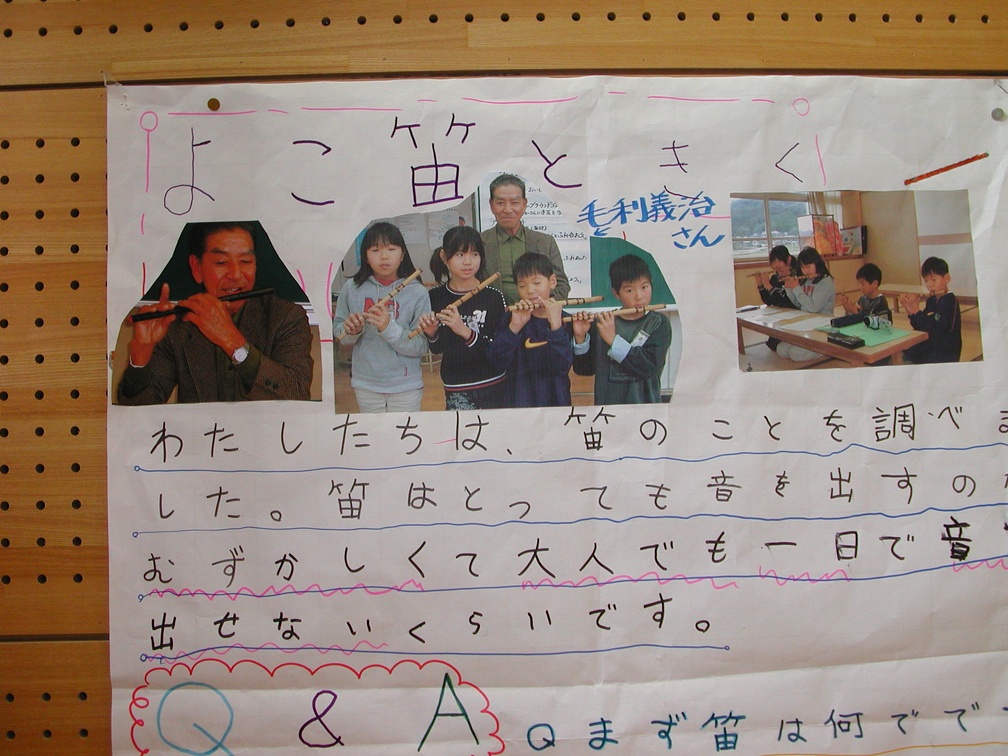 よこ笛ときく
毛利義治
さん
わたしたちは、笛のことを調べま
した。笛はとっても音を出すのが
むずかしくて大人でも一日で音
出せないくらいです。
Q & A
Qまず笛は何でで